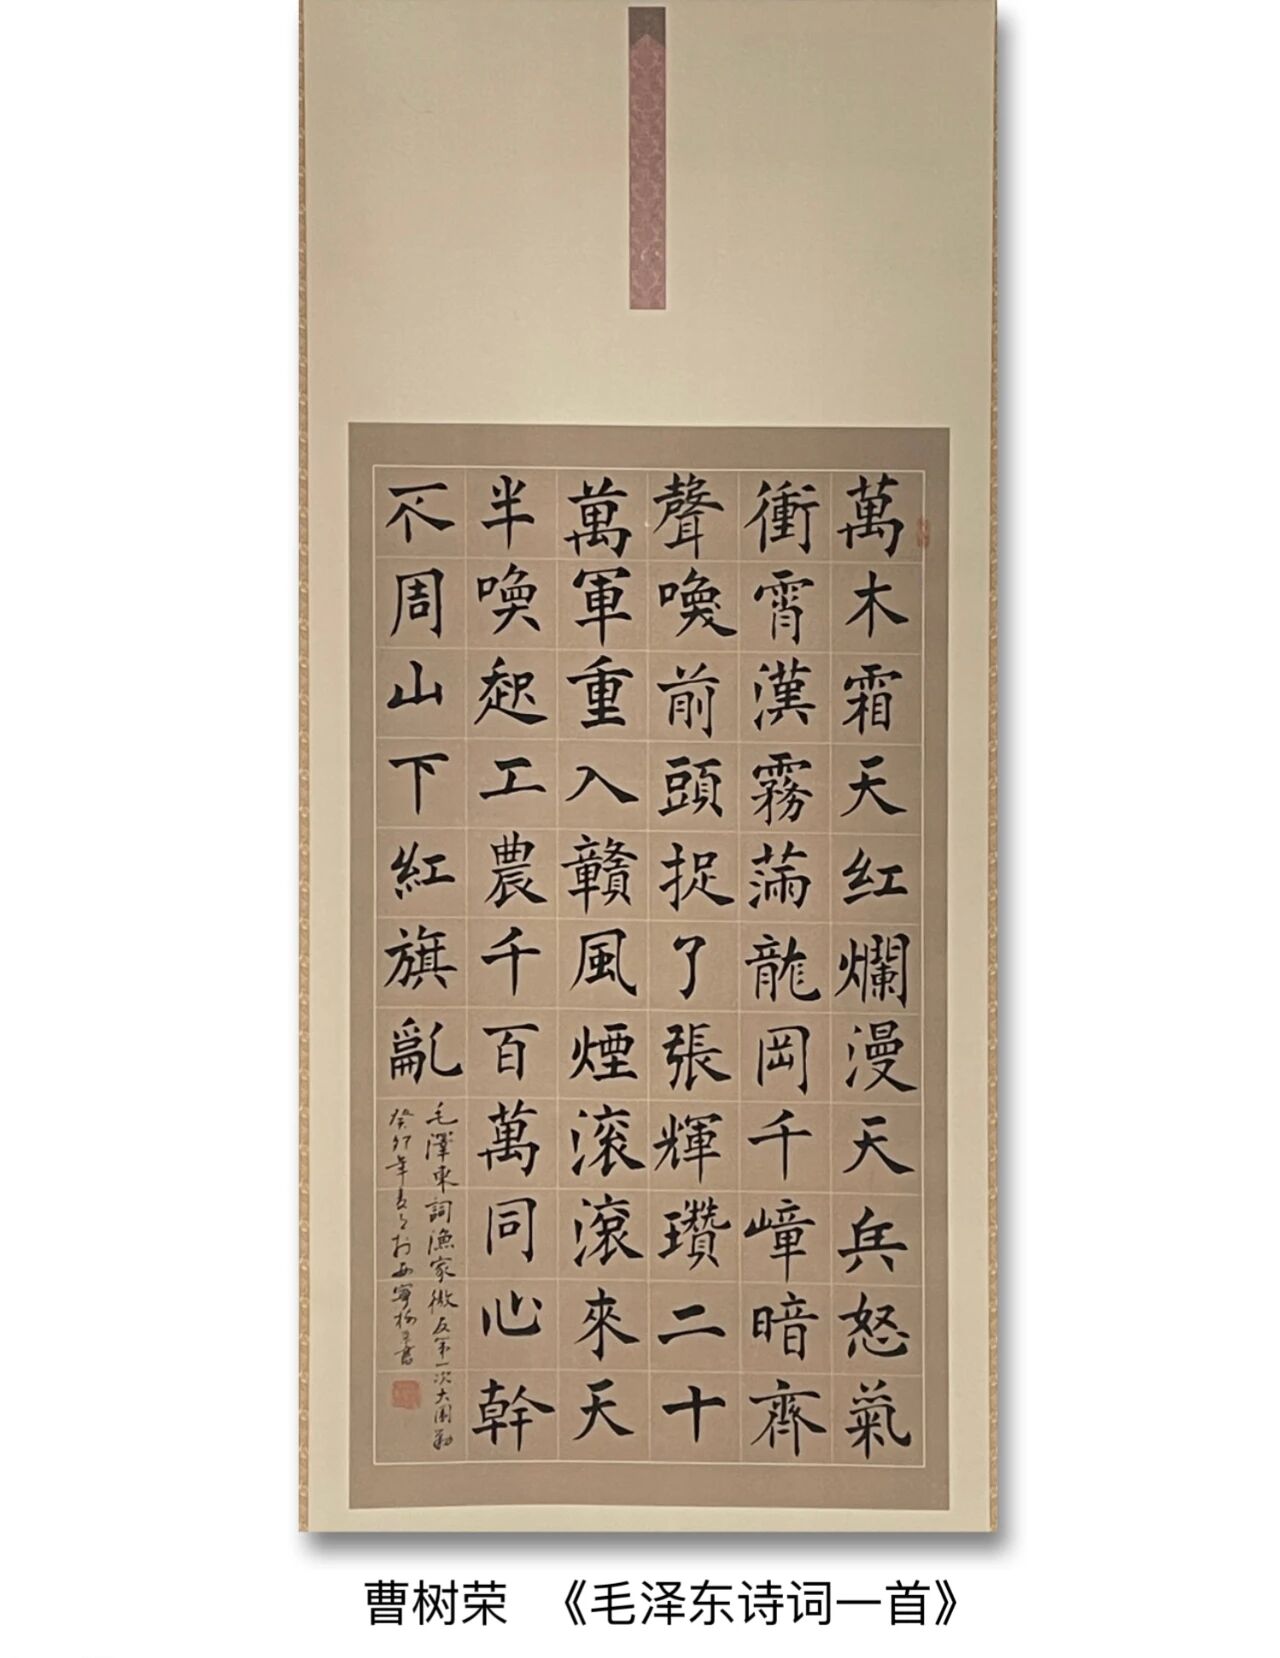 萬木霜天红爛漫天兵怒氣
衝霄漢霧滿龍岡千嶂暗齊
聲喚前頭捉了張輝瓚二十
萬軍重入贛風煙滾滾來天
半喚起工農千百萬同心幹
不周山下紅旗亂
毛澤東詞漁家傲反第一次大圍剿
癸卯年春月於西寧樹榮書
曹树荣 《毛泽东诗词一首》